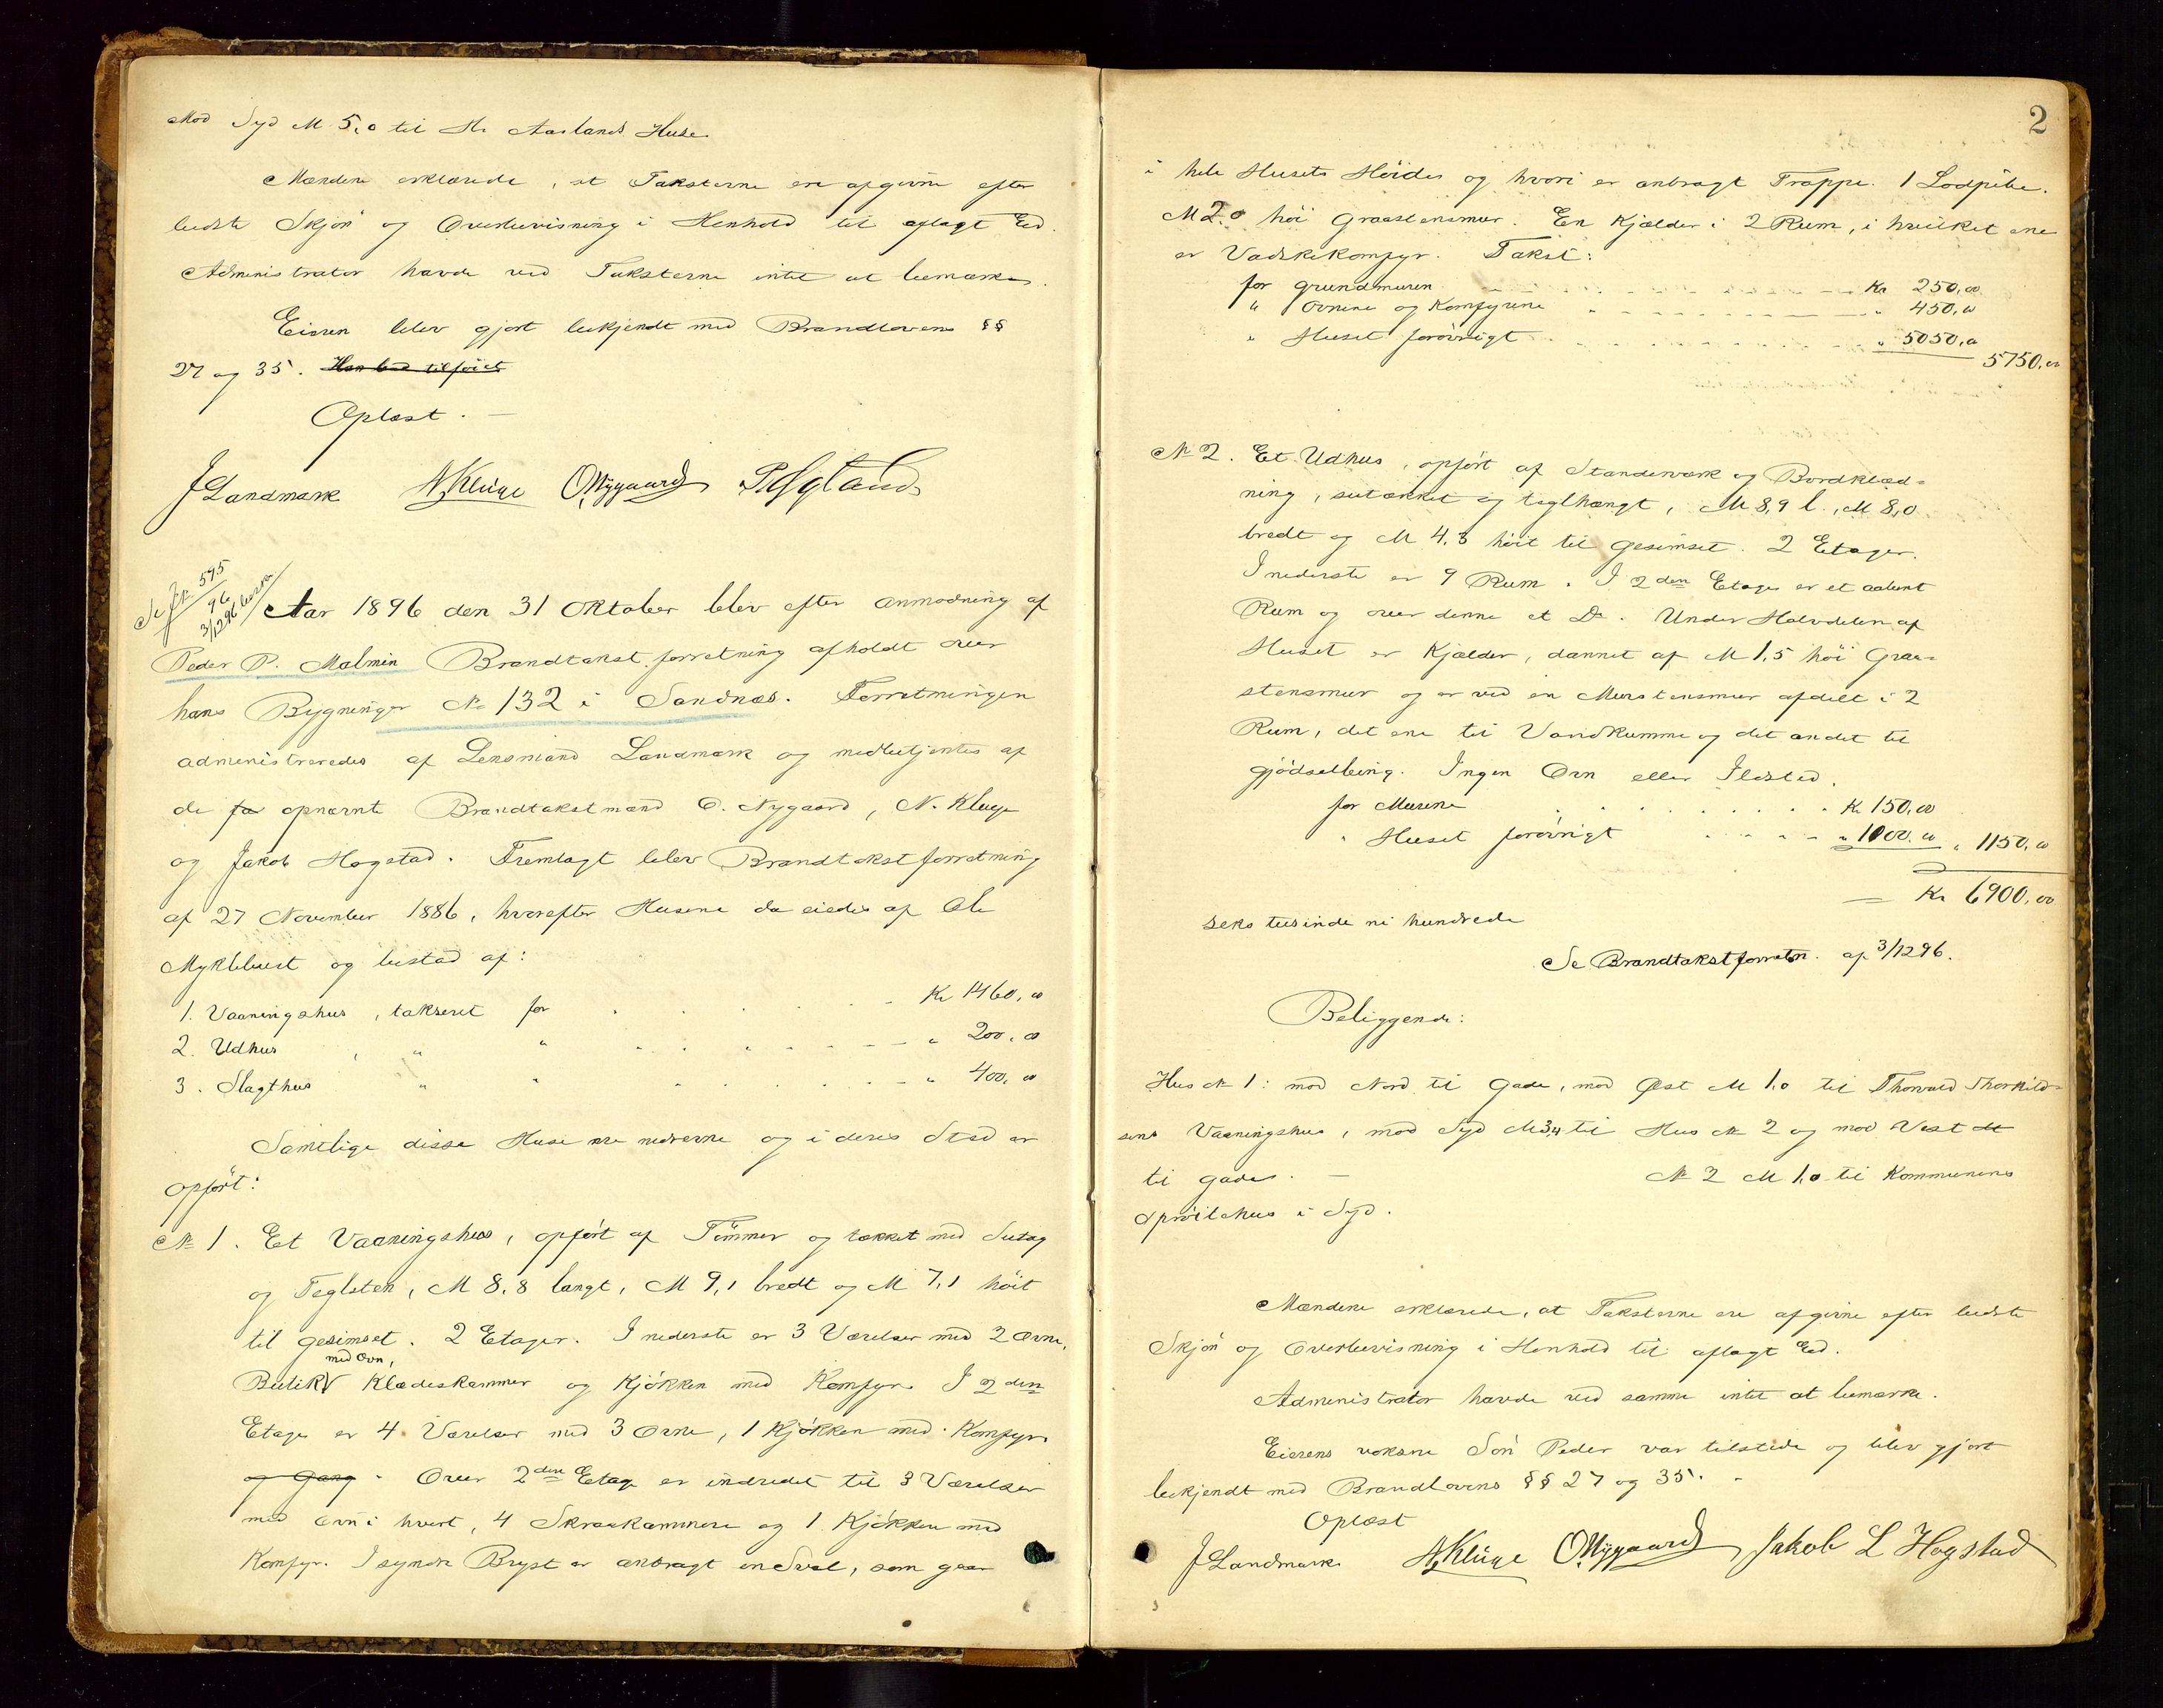 Mod Syd M 5,0 til Hr Aaslands Huse
Mændene erklærede, at Taksterne ere afgivne efter
bedste Skjøn og Overbevisning i Henhold til aflagt Ed.
Administrator havde ved Taksterne intet at bemærke.
Eieren blev gjort bekjendt med Brandlovens §§
27 og 35. Han bad tilføiet
Oplæst. —
J Landmark N. Kluge O. Nygaard
Se Jr. 595
96
3/12 96
Aar 1896 den 31 Oktober blev efter Anmodning af
Peder P. Malmin Brandtakstforretning afholdt over
hans Bygninger No 132 i Sandnæs. Forretningen
administreredes af Lensmand Landmark og medbetjentes af
de fa opnævnte Brandtakstmænd O. Nygaard, N. Kluge
og Jakob Hogstad. Fremlagt blev Brandtakstforretning
af 27 November 1886, hvorefter Husene da eiedes af Ole
Myklebust og bestod af:
1. Vaaningshus, takseret for Kr 1460,00
2. Udhus, " " " 200,00
3. Slagthus " " " 400,00
Samtlige disse Huse ere nedrevne og i deres Sted er
opført:
No 1. Et Vaaningshus, opført af Tømmer og tækket med Sutag
og Teglsten, M 8,8 langt, M 9,1 bredt og M 7,1 høit
til Gesimset. 2 Etager. I nederste er 3 Værelser med 2 Ovne,
med Ovn,
Butik V Klædeskammer og Kjøkken med Komfyr. I 2den
Etage er 4 Værelser med 3 Ovne, 1 Kjøkken med Komfyr
og Gang. Over 2den Etage er indredet til 3 Værelser
med Ovn i hvert, 4 Skraakammere og 1 Kjøkken med
Komfyr. I søndre Bryst er anbragt en Sval, som gaar
2
i hele Husets Høide og hvori er anbragt Trappe. 1 Lodpibe.
M 2.0 høi Graastensmur. En Kjælder i 2 Rum, i hvilket ene
er Vadskekomfyr. Takst:
for Grundmuren Kr 250,00
" Ovnene og Komfyrene " 450,00
" Huset forøvrigt " 5050,00
5750,00
No 2. Et Udhus, opført af Stenderværk og Bordklæd=
ning, sutækket og teglhængt, M 8,9 l., M 8,0
bredt og M 4,3 høit til Gesimset. 2 Etager.
I nederste er 9 Rum. I 2den Etage er et aabent
Rum og over denne et Do. Under Halvdelen af
Huset er Kjælder, dannet af M 1,5 høi Graa=
stensmur og er ved en Murstensmur afdelt i 2
Rum, det ene til Vandkumme og det andet til
Gjødselbing. Ingen Ovn eller Ildsted.
for Murene Kr 150,00
" Huset forøvrigt " 1000,00 " 1150,00
— Kr 6900,00
seks tusinde ni hundrede
Se Brandtakstforretn. af 3/12 96.
Beliggende:
Hus No 1: mod Nord til Gade, mod Øst M 1,0 til Thorvald Thorkild=
sens Vaaningshus, mod Syd M 3,4 til Hus No 2 og mod Vest dt
til Gade. — No 2 M 1,0 til Kommunens
Sprøitehus i Syd.
Mændene erklærede, at Taksterne ere afgivne efter bedste
Skjøn og Overbevisning i Henhold til aflagt Ed.
Administrator havde ved samme intet at bemærke.
Eierens voksne Søn Peder var tilstede og blev gjort
bekjendt med Brandlovens §§ 27 og 35.
Oplæst
J Landmark N. Kluge O. Nygaard Jakob L Hogstad